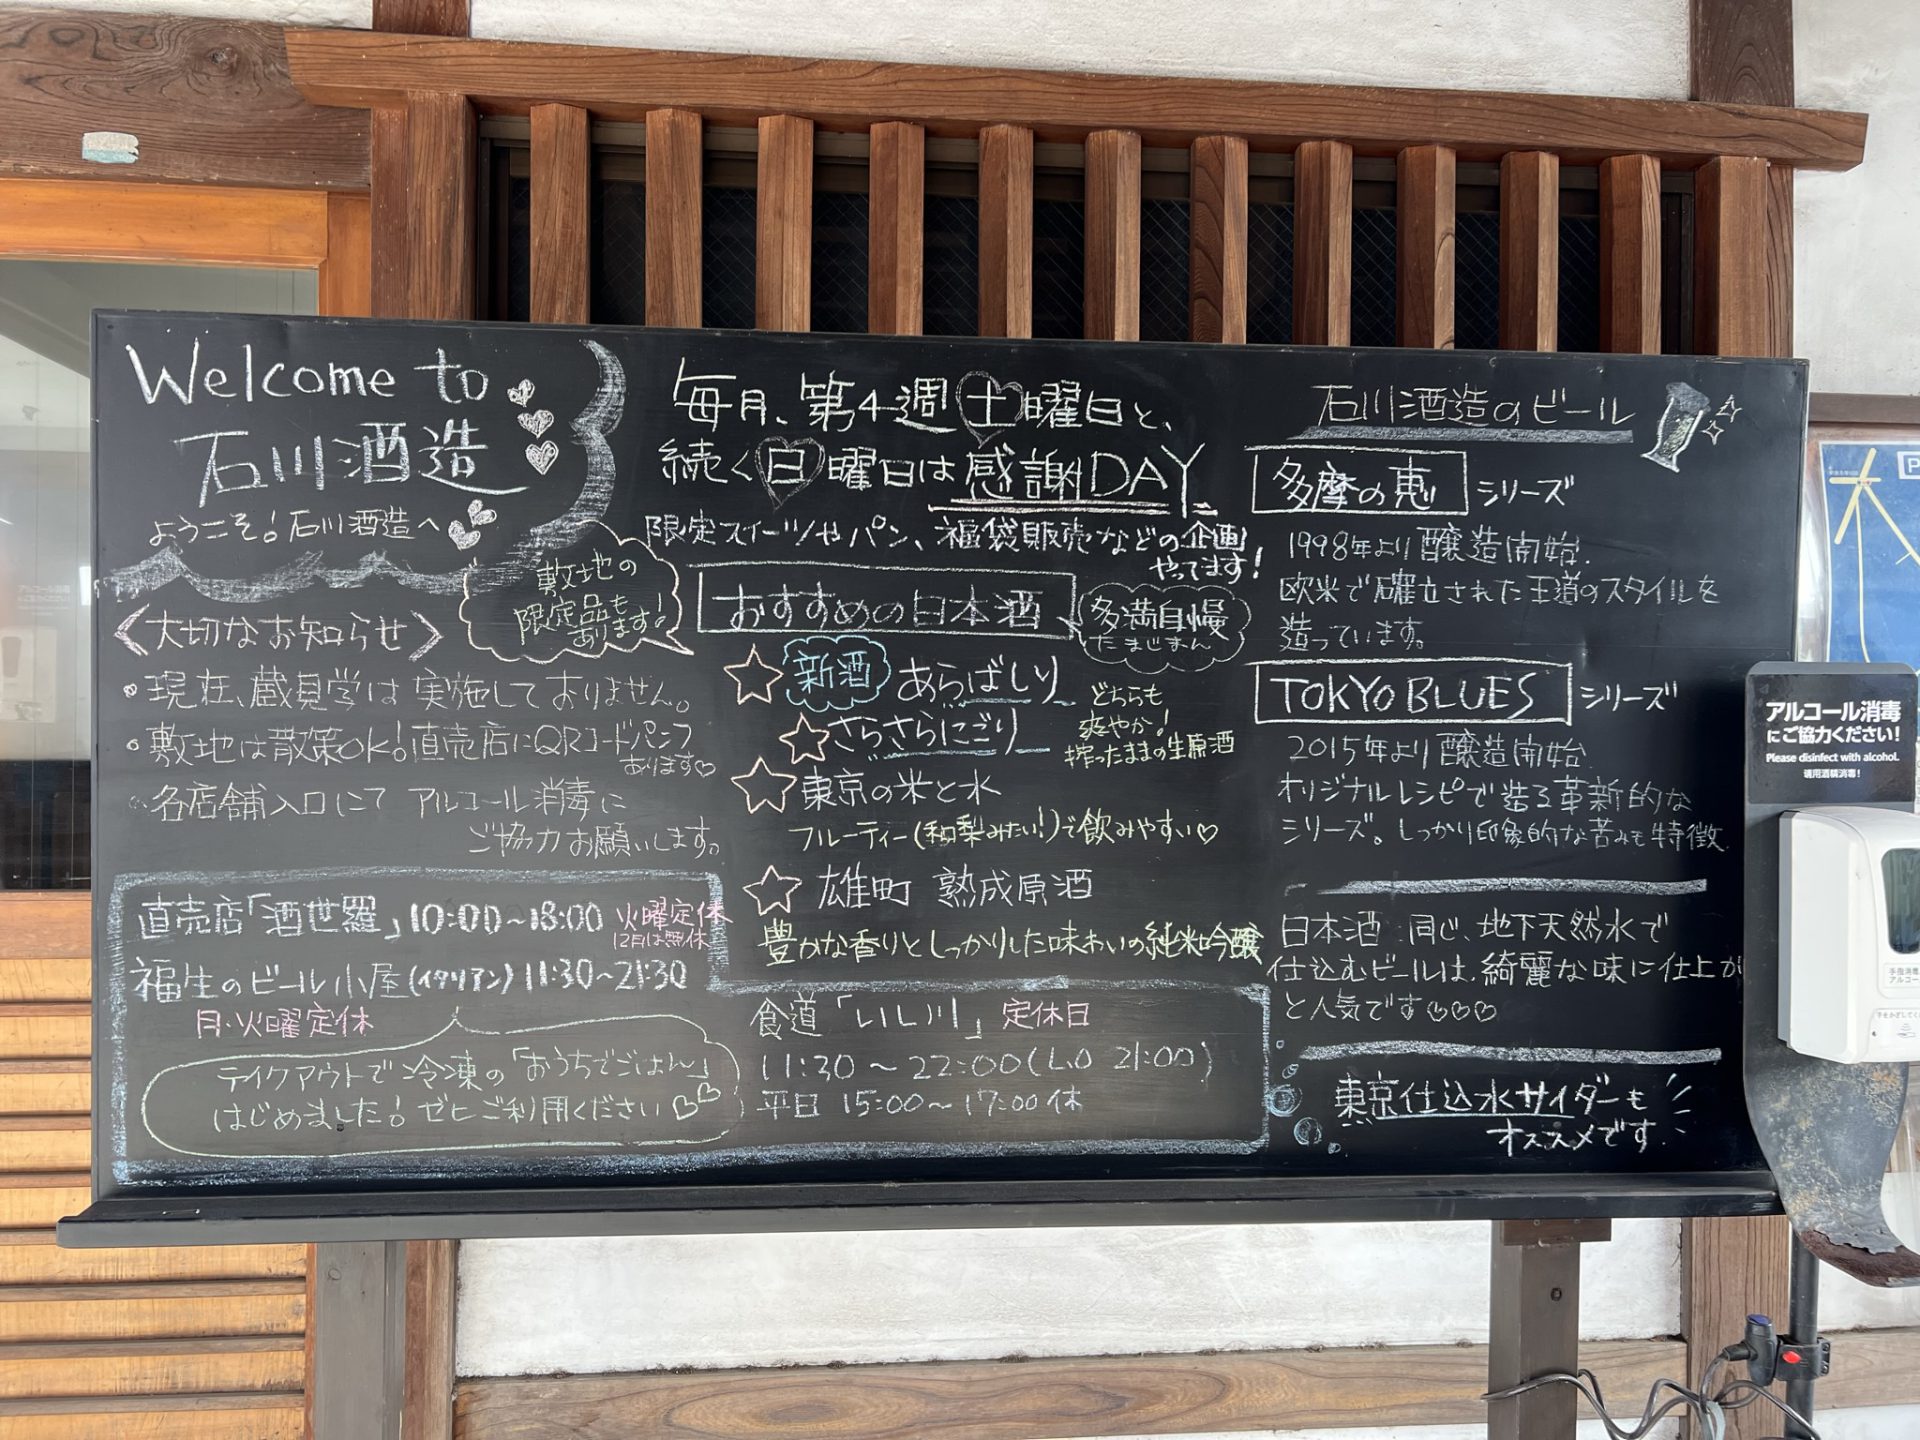 Welcome to
石川酒造
ようこそ！石川酒造へ
敷地の
限定品も
あります！
〈大切なお知らせ〉
・現在、蔵見学は実施しておりません。
・敷地は散策OK！直売店にQRコードパンフ
あります♡
・各店舗入口にて アルコール消毒に
ご協力お願いします。
直売店「酒世羅」10:00～18:00 火曜定休
12月は無休
福生のビール小屋(イタリアン) 11:30～21:30
月・火曜定休
テイクアウトで冷凍の「おうちでごはん」
はじめました！ぜひご利用ください♡♡
毎月、第4週土曜日と、
続く日曜日は感謝DAY
限定スイーツやパン、福袋販売などの企画
やってます！
おすすめの日本酒
多満自慢
たまじまん
☆新酒 あらばしり
☆さらさらにごり
どちらも
爽やか！
搾ったままの生原酒
☆東京の米と水
フルーティー(和梨みたい！)で飲みやすい♡
☆雄町 熟成原酒
豊かな香りとしっかりした味わいの純米吟醸
食道「いし川」定休日
11:30～22:00(L.O 21:00)
平日 15:00～17:00休
石川酒造のビール
多摩の恵 シリーズ
1998年より醸造開始.
欧米で確立された王道のスタイルを
造っています。
TOKYO BLUES シリーズ
2015年より醸造開始.
オリジナルレシピで造る革新的な
シリーズ。しっかり印象的な苦みも特徴.
日本酒と同じ、地下天然水で
仕込むビールは、綺麗な味に仕上が
と人気です♡♡♡
東京仕込水サイダーも
オススメです.
P
アルコール消毒
にご協力ください！
Please disinfect with alcohol.
请用酒精消毒！